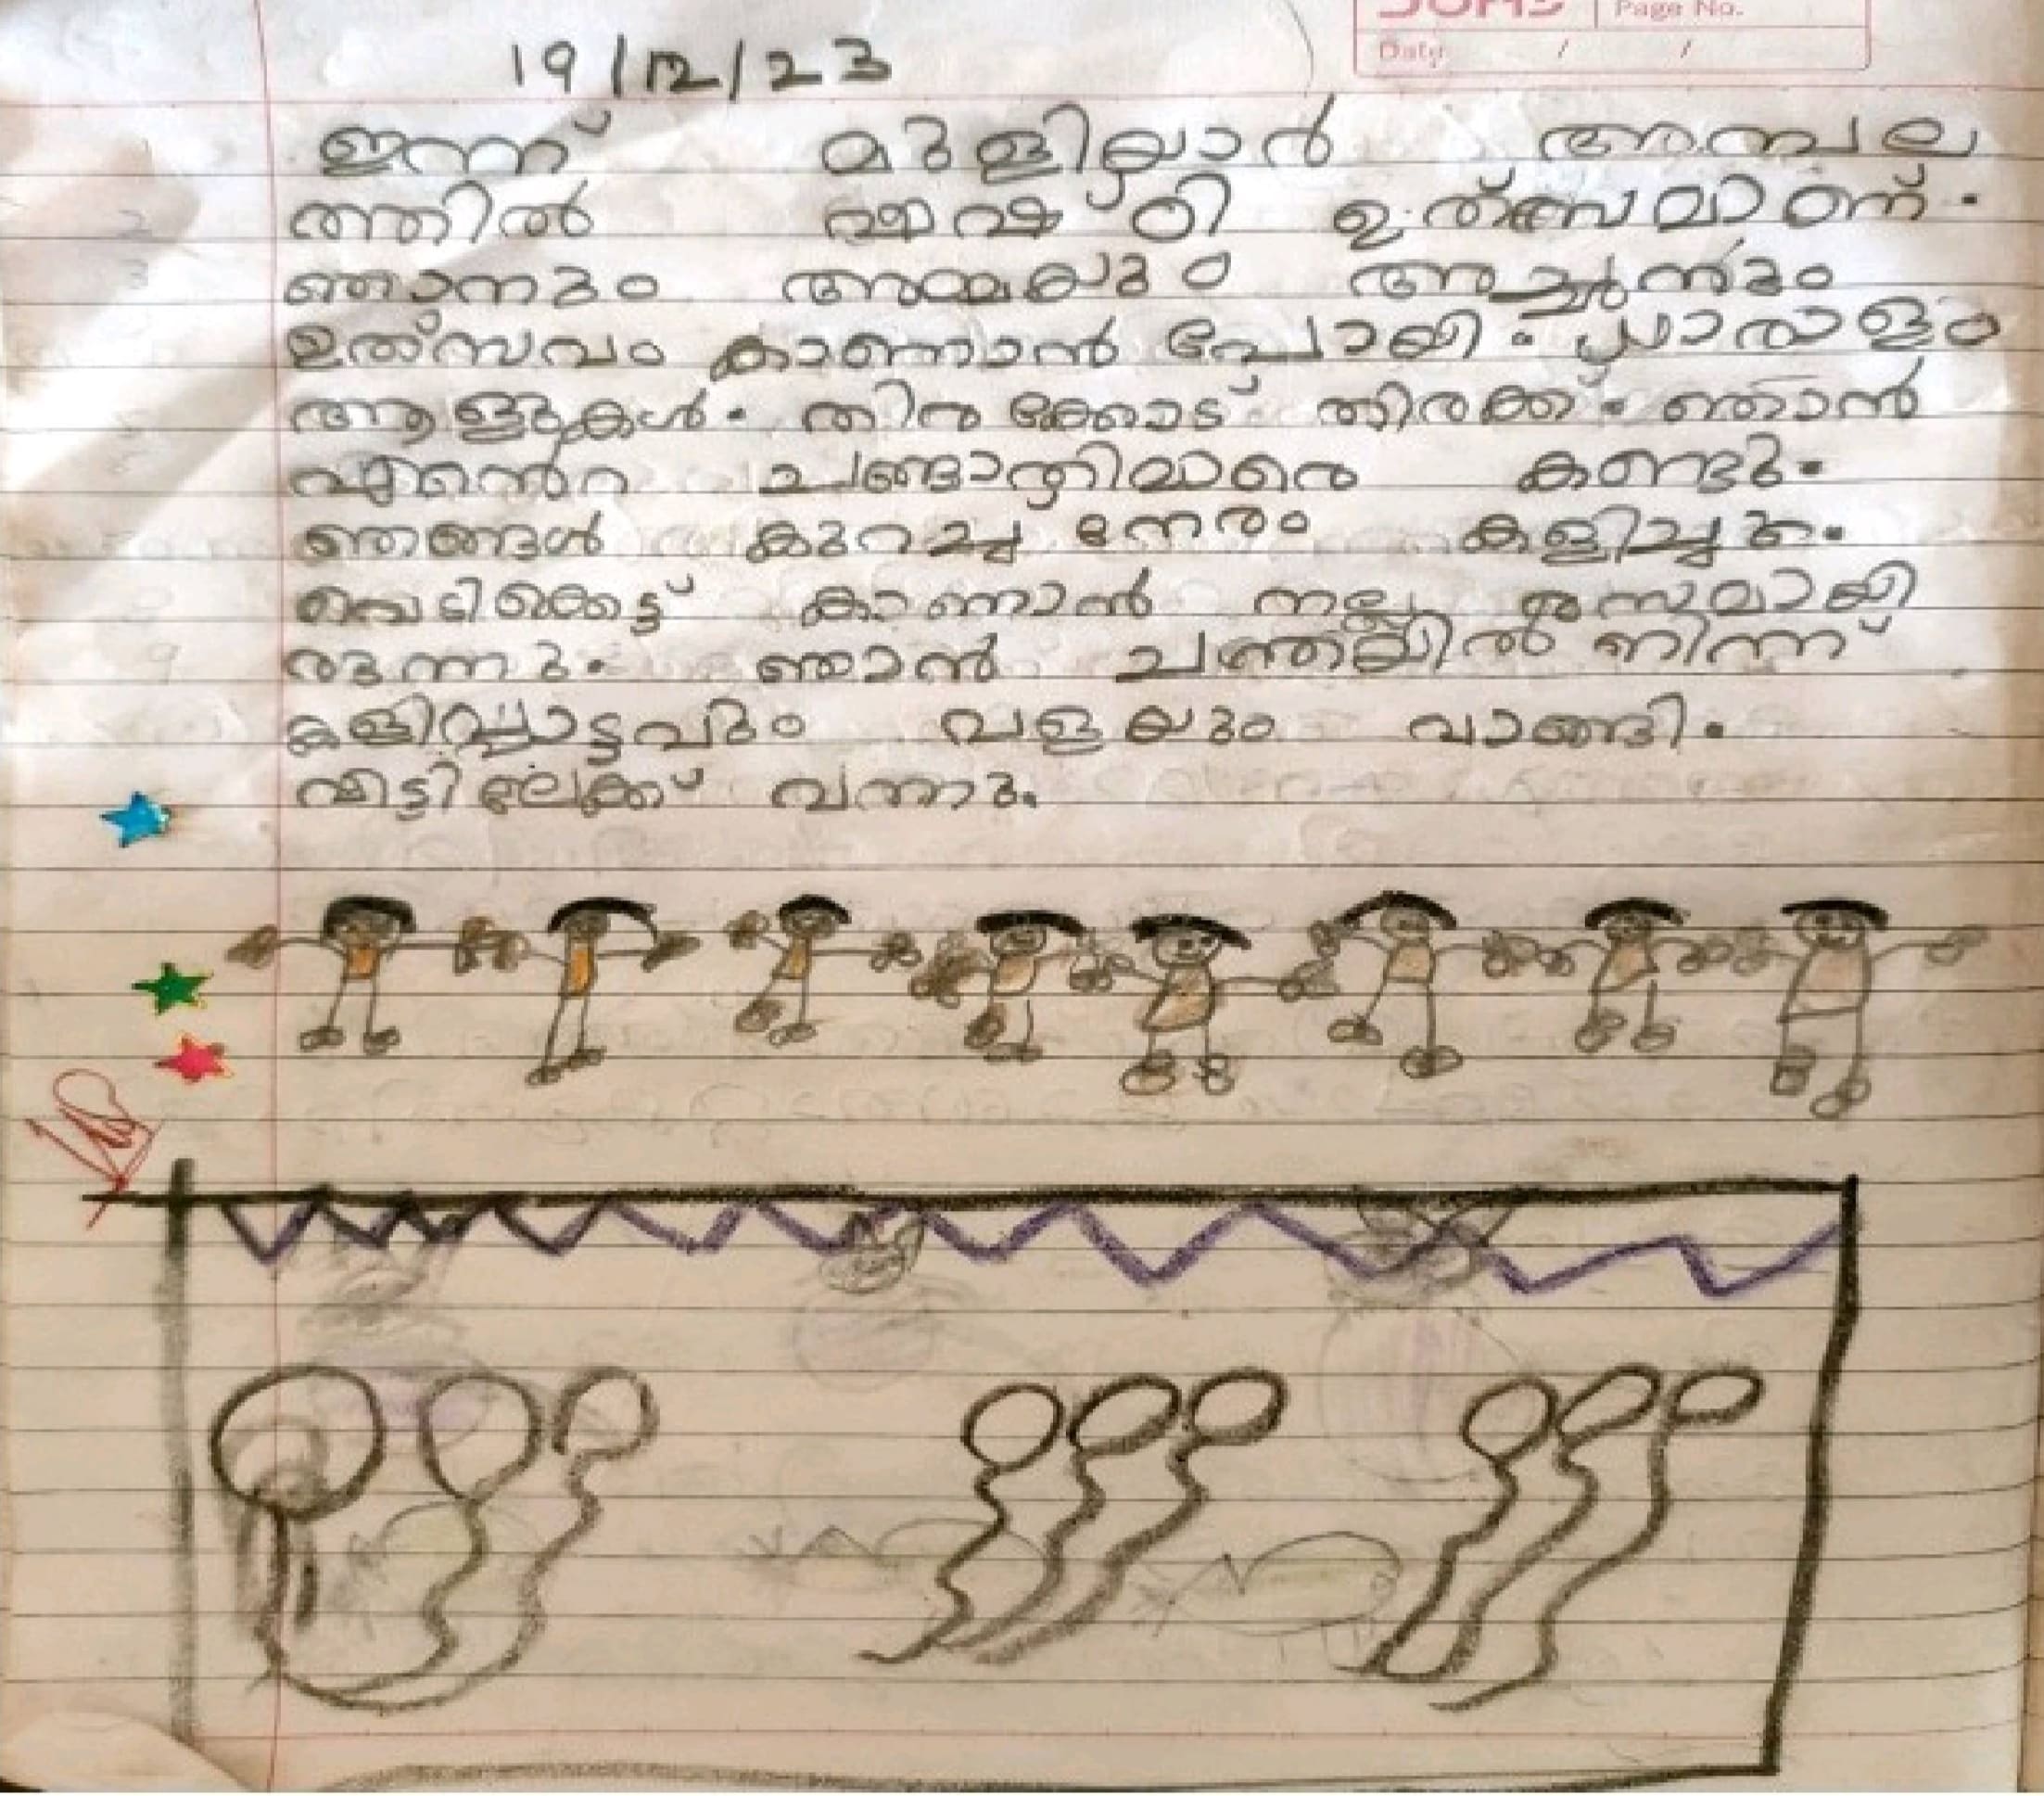 Page No.
Date / /
19/12/23
ഇന്ന് മുളിയാർ അമ്പല
ത്തിൽ ഷഷ്ഠി ഉത്സവമാണ്.
ഞാനും അമ്മയും അച്ഛനും
ഉത്സവം കാണാൻ പോയി. ധാരാളം
ആളുകൾ. തിരക്കോട് തിരക്ക്. ഞാൻ
എൻെറ ചങ്ങാതിമാരെ കണ്ടു.
ഞങ്ങൾ കുറച്ചു നേരം കളിച്ചു.
വെടിക്കെട്ട് കാണാൻ നല്ല രസമായി
രുന്നു. ഞാൻ ചന്തയിൽ നിന്ന്
കളിപ്പാട്ടവും വളയും വാങ്ങി.
വീട്ടിലേക്ക് വന്നു.